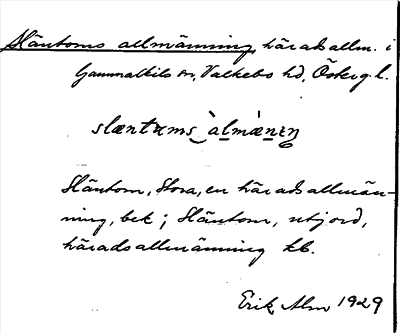 Släntoms allmänning, häradsallm. i
Gammalkils sn, Valkebo hd, Östergl.
slæntʊms ̮àlmä̀nıŋ
Släntom, Stora, en häradsallmän-
ning, bek; Släntom, utjord,
häradsallmänning kb.
Erik Alm 1929